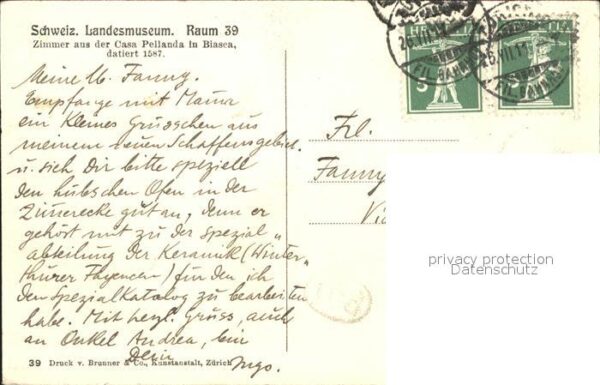 Schweiz. Landesmuseum. Raum 39
Zimmer aus der Casa Pellanda in Biasca,
datiert 1587.
Meine lb. Fanny.
Empfange mit Mama
ein kleines Grüsschen aus
meinem neuen Schaffensgebiet.
u. sieh Dir bitte speziell
den hübschen Ofen in der
Zimmerecke gut an, denn er
gehört mit zu der Spezial„
abteilung der Keramik (Winter„
thurer Fayencen) für den ich
den Spezialkatalog zu bearbeiten
habe. Mit herzl. Gruss, auch
an Onkel Andrea, bin
Dein
Hugo.
39 Druck v. Brunner & Co., Kunstanstalt, Zürich
HELVETIA
5
26.VII.11
FIL. BAHNHOF
Frl.
Fanny
privacy protection
Datenschutz